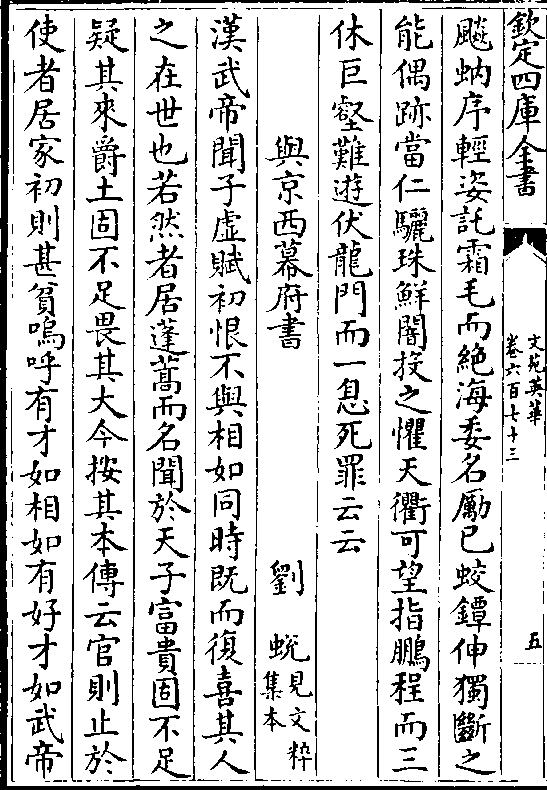 欽定四庫全書
文苑英華
卷六百七十三
五
飈蚋序輕姿託霜毛而絶海委名厲已蛟鐔伸獨斷之
能偶跡當仁驪珠鮮闇投之懼天衢可望指鵬程而三
休巨壑難遊伏龍門而一息死罪云云
與京西幕府書
劉蛻見文粹集本
漢武帝聞子虛賦初恨不與相如同時既而復喜其人
之在世也若然者居蓬蒿而名聞於天子富貴固不足
疑其來爵土固不足畏其大今按其本傳云官則止於
使者居家初則甚貧嗚呼有才如相如有好才如武帝